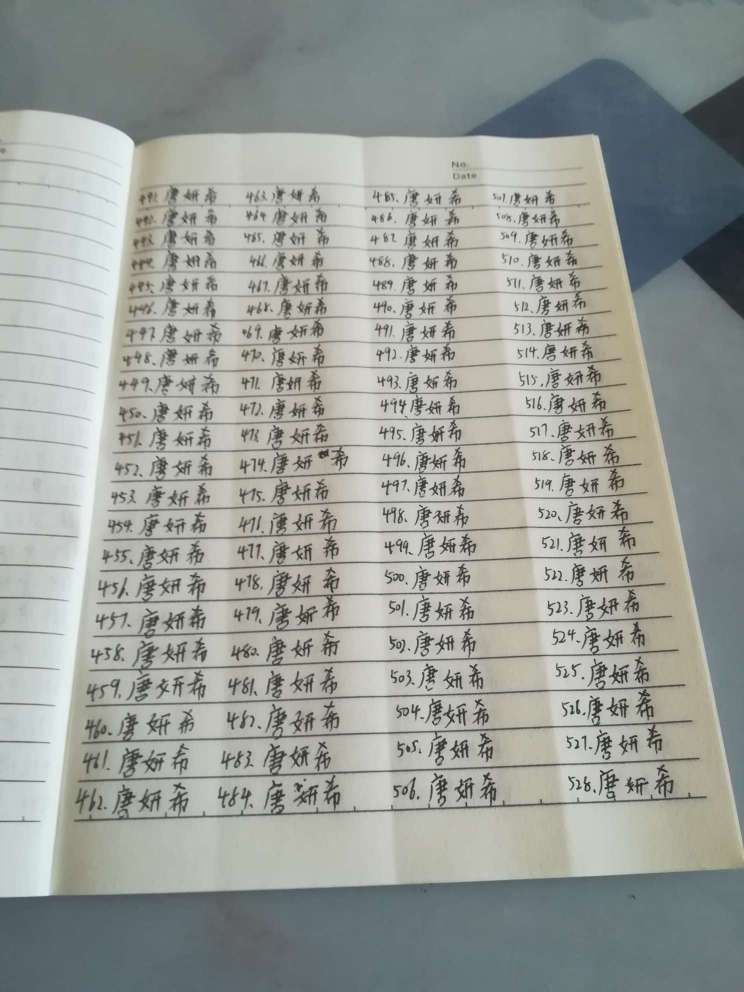 No.
Date
441.唐妍希 463.唐妍希 485.唐妍希 507.唐妍希
442.唐妍希 464.唐妍希 486.唐妍希 508.唐妍希
443.唐妍希 465.唐妍希 487.唐妍希 509.唐妍希
444.唐妍希 466.唐妍希 488.唐妍希 510.唐妍希
445.唐妍希 467.唐妍希 489.唐妍希 511.唐妍希
446.唐妍希 468.唐妍希 490.唐妍希 512.唐妍希
447.唐妍希 469.唐妍希 491.唐妍希 513.唐妍希
448.唐妍希 470.唐妍希 492.唐妍希 514.唐妍希
449.唐妍希 471.唐妍希 493.唐妍希 515.唐妍希
450.唐妍希 472.唐妍希 494.唐妍希 516.唐妍希
451.唐妍希 473.唐妍希 495.唐妍希 517.唐妍希
452.唐妍希 474.唐妍希 496.唐妍希 518.唐妍希
453.唐妍希 475.唐妍希 497.唐妍希 519.唐妍希
454.唐妍希 476.唐妍希 498.唐妍希 520.唐妍希
455.唐妍希 477.唐妍希 499.唐妍希 521.唐妍希
456.唐妍希 478.唐妍希 500.唐妍希 522.唐妍希
457.唐妍希 479.唐妍希 501.唐妍希 523.唐妍希
458.唐妍希 480.唐妍希 502.唐妍希 524.唐妍希
459.唐妍希 481.唐妍希 503.唐妍希 525.唐妍希
460.唐妍希 482.唐妍希 504.唐妍希 526.唐妍希
461.唐妍希 483.唐妍希 505.唐妍希 527.唐妍希
462.唐妍希 484.唐妍希 506.唐妍希 528.唐妍希